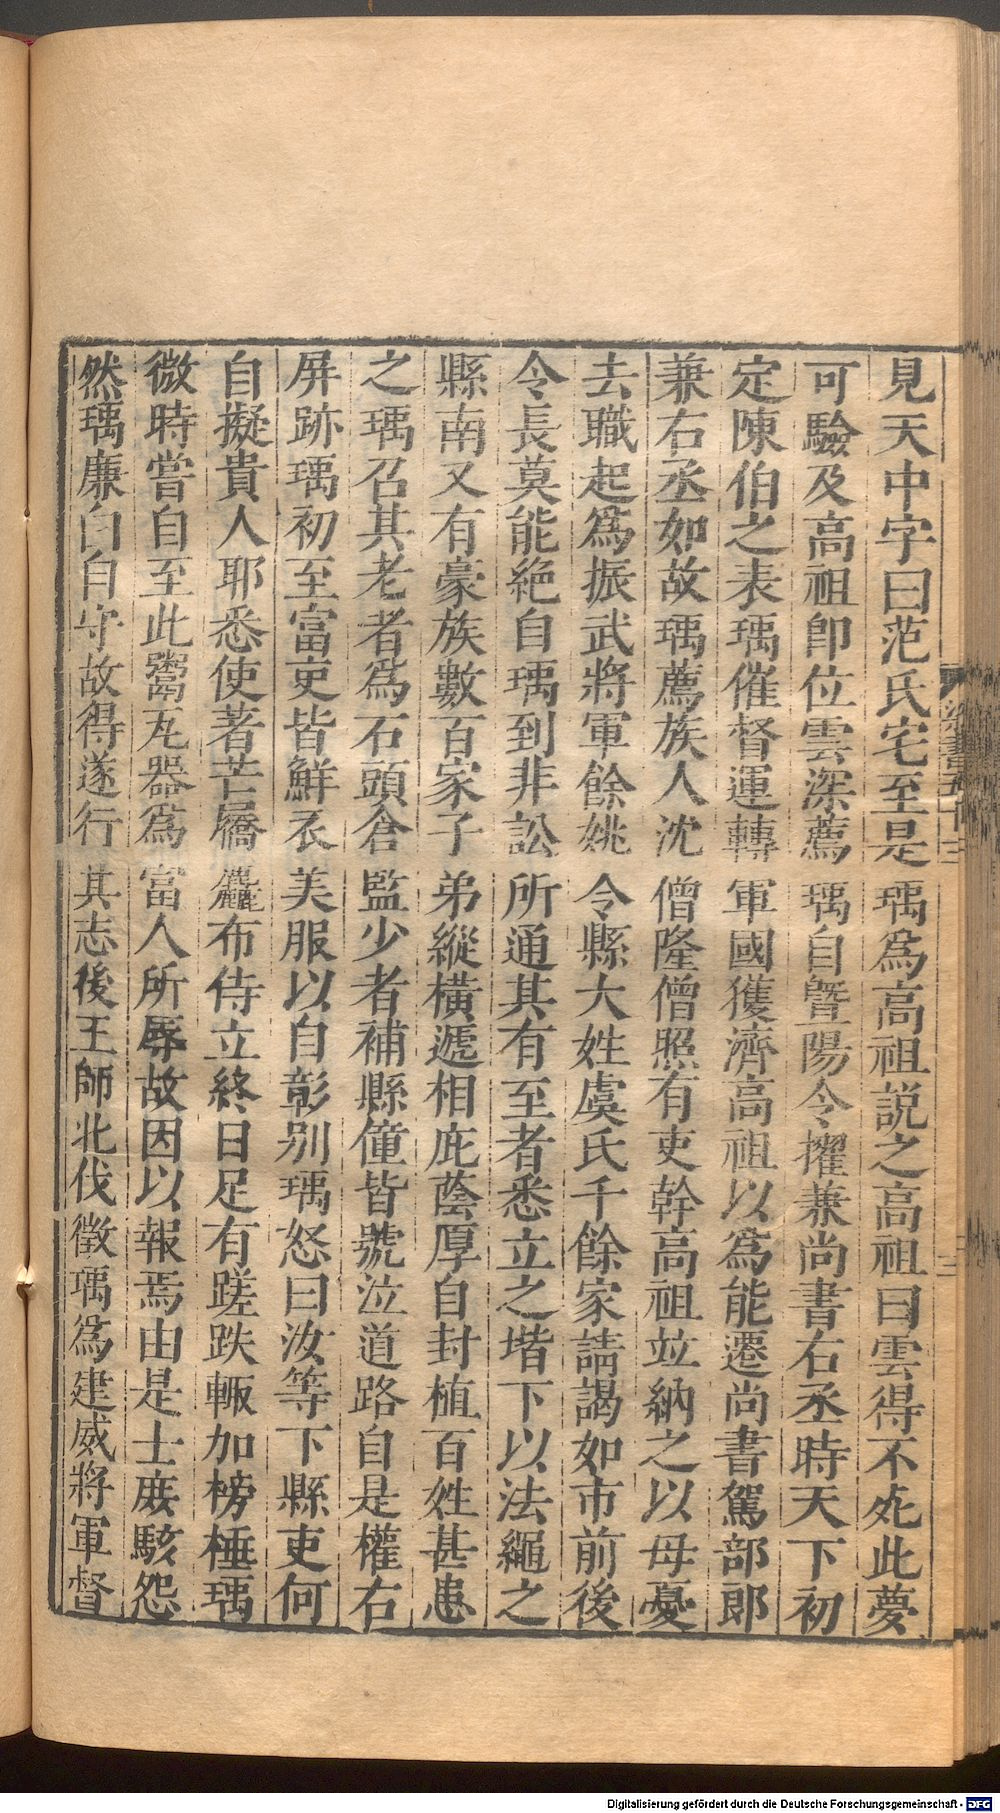 見天中字曰范氏宅至是瑀爲高祖説之高祖曰雲得不死此夢
可驗及高祖卽位雲深薦瑀自曁陽令擢兼尚書右丞時天下初
定陳伯之表瑀催督運轉軍國獲濟高祖以爲能遷尚書駕部郎
兼右丞如故瑀薦族人沈僧隆僧照有吏幹高祖並納之以母憂
去職起爲振武將軍餘姚令縣大姓虞氏千餘家請謁如市前後
令長莫能絶自瑀到非訟所通其有至者悉立之堦下以法繩之
縣南又有豪族數百家子弟縱橫遞相庇蔭厚自封植百姓甚患
之瑀召其老者爲石頭倉監少者補縣僮皆號泣道路自是權右
屏跡瑀初至富吏皆鮮衣美服以自彰別瑀怒曰汝等下縣吏何
自擬貴人耶悉使著芒屩麤布侍立終日足有蹉跌輙加榜棰瑀
微時嘗自至此鬻瓦器爲富人所辱故因以報焉由是士庶駭怨
然瑀廉白自守故得遂行其志後王師北伐徵瑀爲建威將軍督
Digitalisierung gefördert durch die Deutsche Forschungsgemeinschaft - DFG